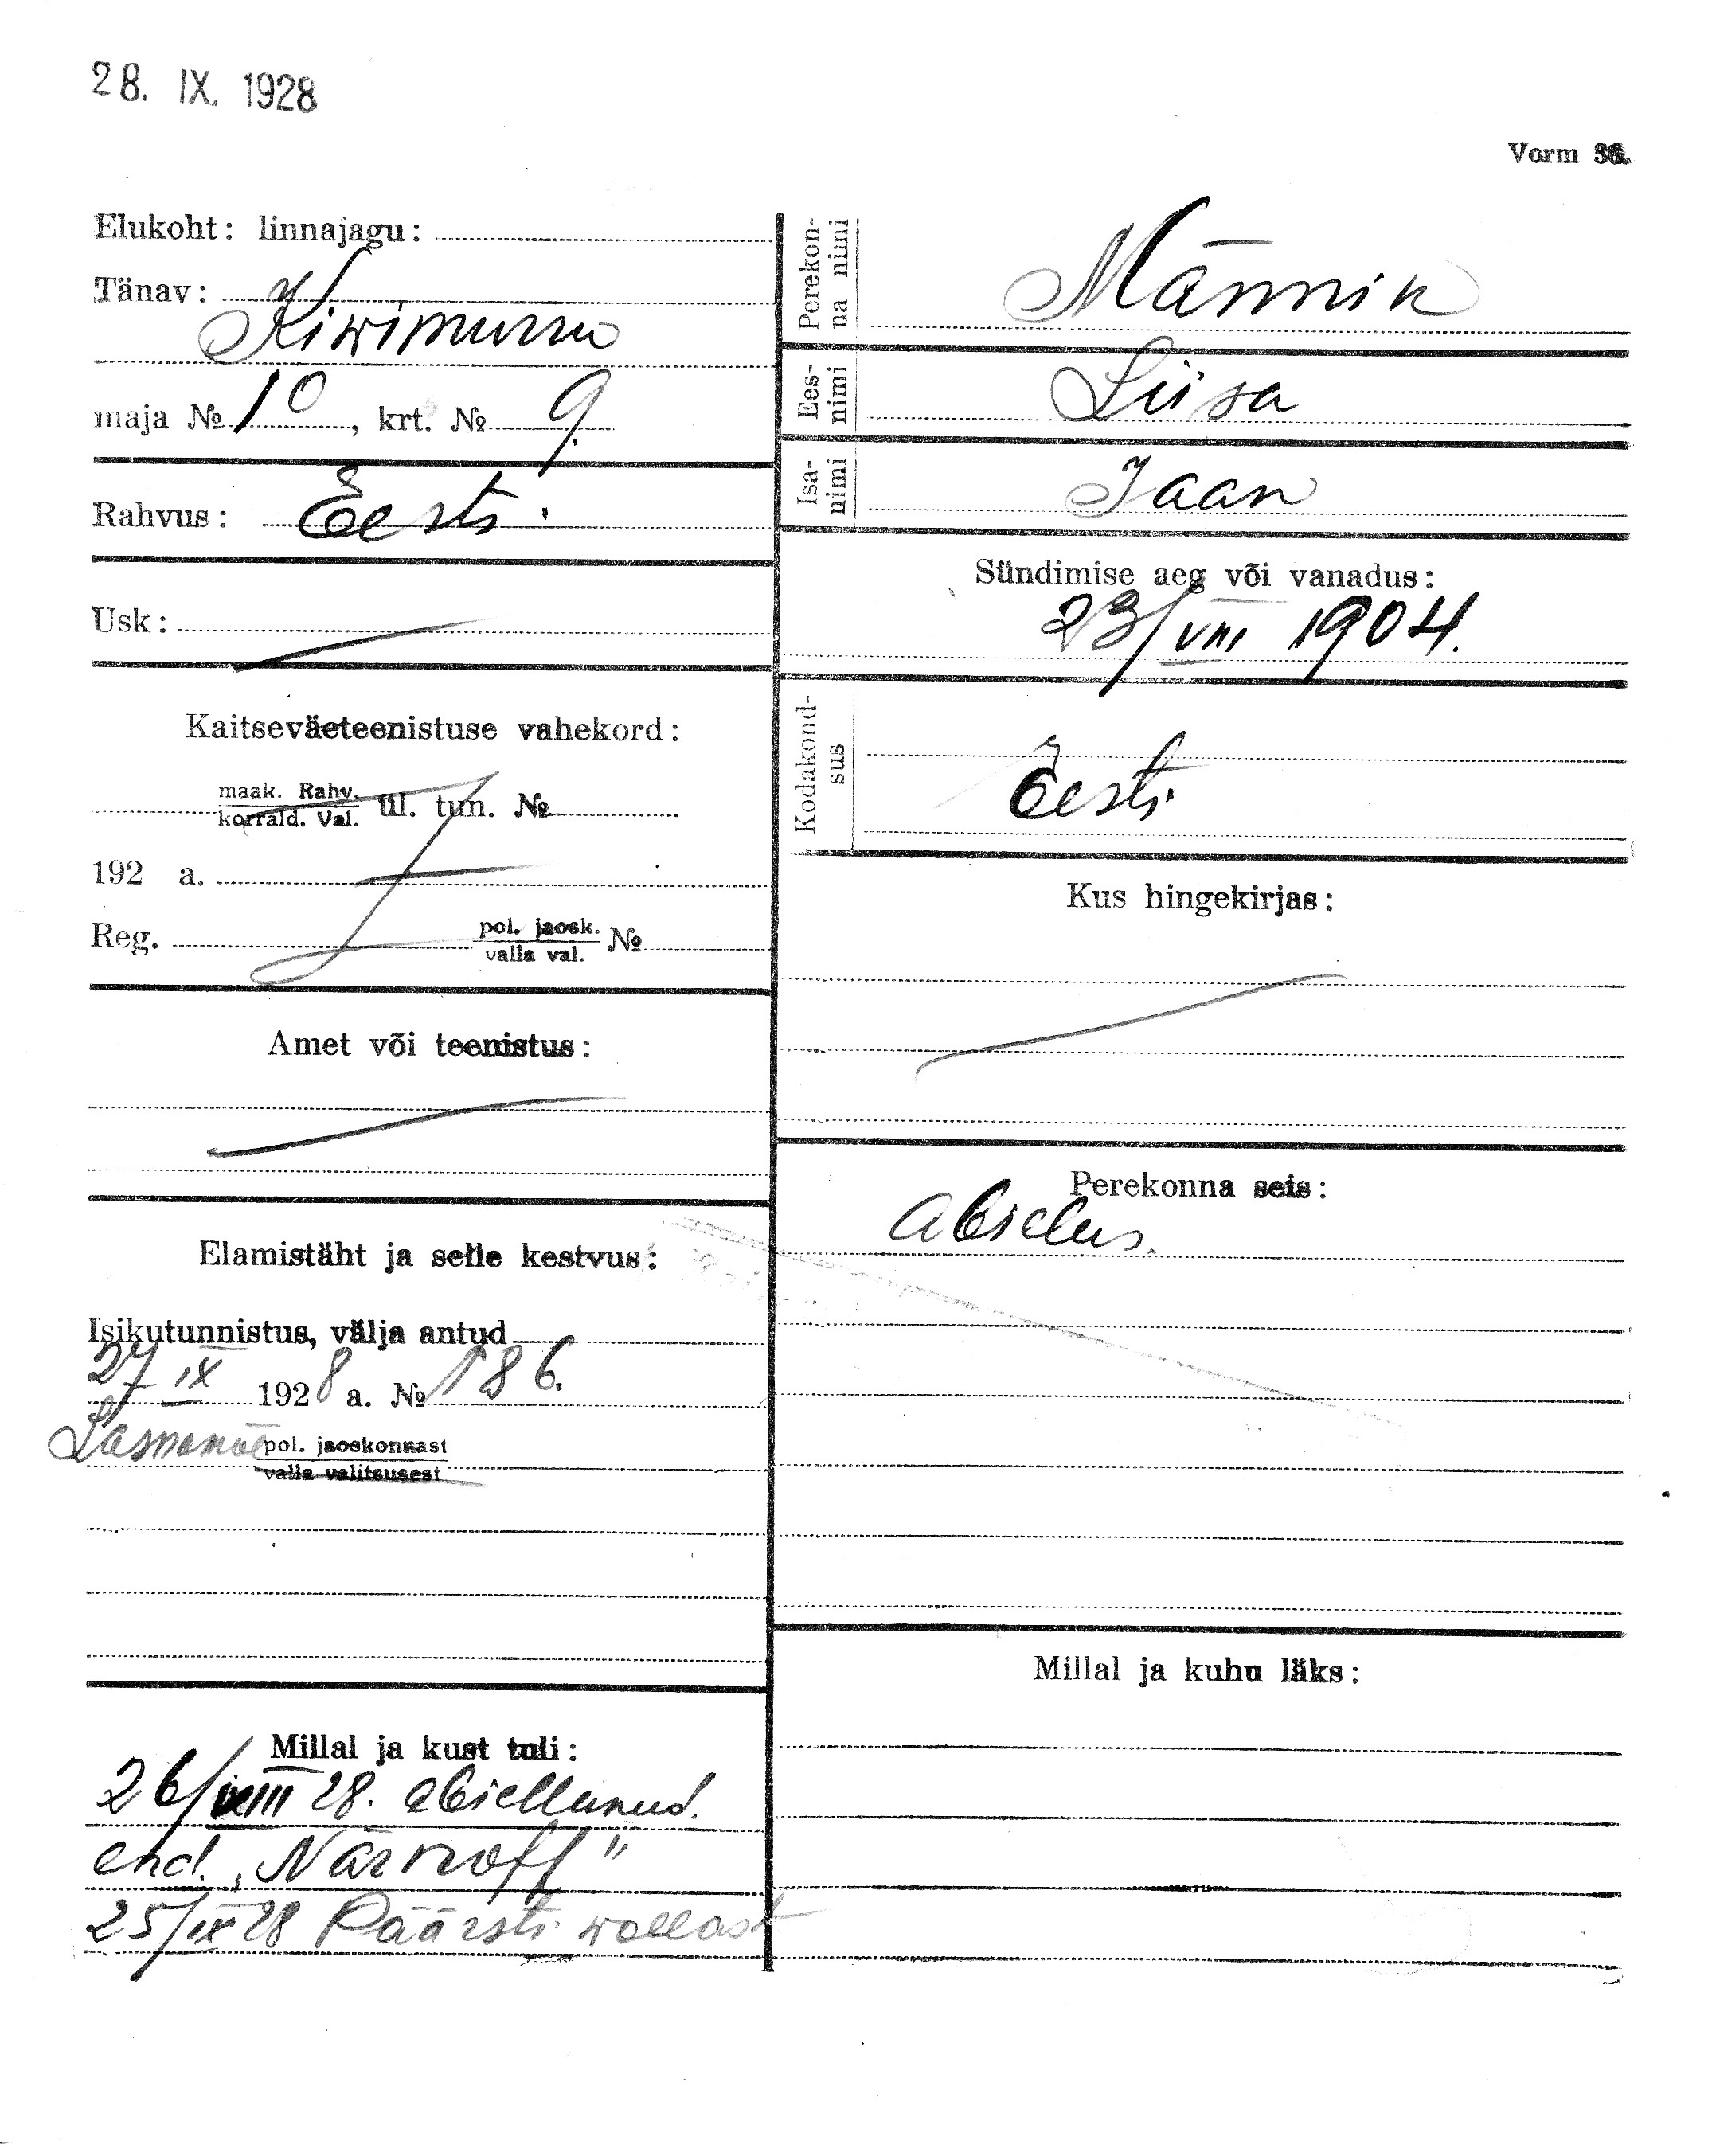 28. IX. 1928
Vorm 36.
Elukoht: linnajagu:
Tänav:
Kiwimurru
maja № 10, krt. № 9.
Rahvus: Eesti.
Usk:
Kaitseväeteenistuse vahekord:
maak. Rahv.
korrald. Val. ül. tun. №
192 a.
Reg. pol. jaosk.
valla val. №
Amet või teenistus:
Elamistäht ja selle kestvus:
Isikutunnistus, välja antud
27 IX 1928 a. № 186.
Lasnamäe pol. jaoskonnast
valla valitsusest
Millal ja kust tuli:
26/VIII 28. abiellunud.
end. „Närnoff"
25/IX 28 Päärsti wallast
Perekon-
na nimi
Männik
Ees-
nimi
Liisa
Isa-
nimi
Jaan
Sündimise aeg või vanadus:
23/VIII 1904.
Kodakond-
sus
Eesti
Kus hingekirjas:
Perekonna seis:
abielus.
Millal ja kuhu läks: